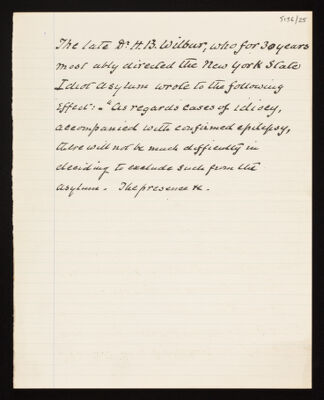 5136/25
The late Dr H. B. Wilbur, who for 30 years
most ably directed the New York State
Idiot Asylum wrote to the following
Effect: - "As regards cases of idiocy,
accompanied with confirmed epilepsy,
there will not be much difficulty in
deciding to exclude such from the
asylum. The presence &c.